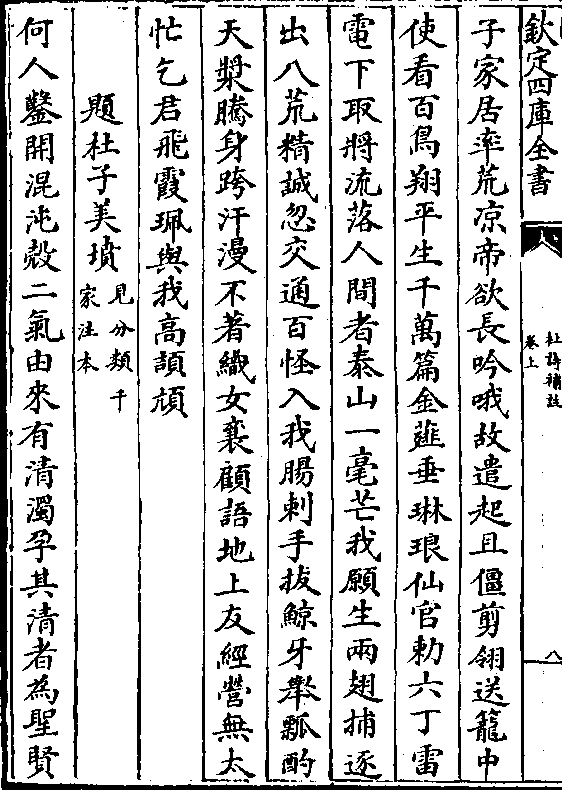 欽定四庫全書
杜詩補註
卷上
八
子家居率荒凉帝欲長吟哦故遣起且僵剪翎送籠中
使看百鳥翔平生千萬篇金薤垂琳琅仙官勅六丁雷
電下取將流落人間者泰山一毫芒我願生兩翅捕逐
出八荒精誠忽交通百怪入我腸刺手拔鯨牙舉瓢酌
天漿騰身跨汗漫不著織女襄顧語地上友經營無太
忙乞君飛霞珮與我高頡頏
題杜子美墳
見分類千
家注本
何人鑿開混沌殻二氣由來有清濁孕其清者為聖賢